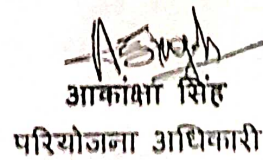 आकांक्षा सिंह
परियोजना अधिकारी